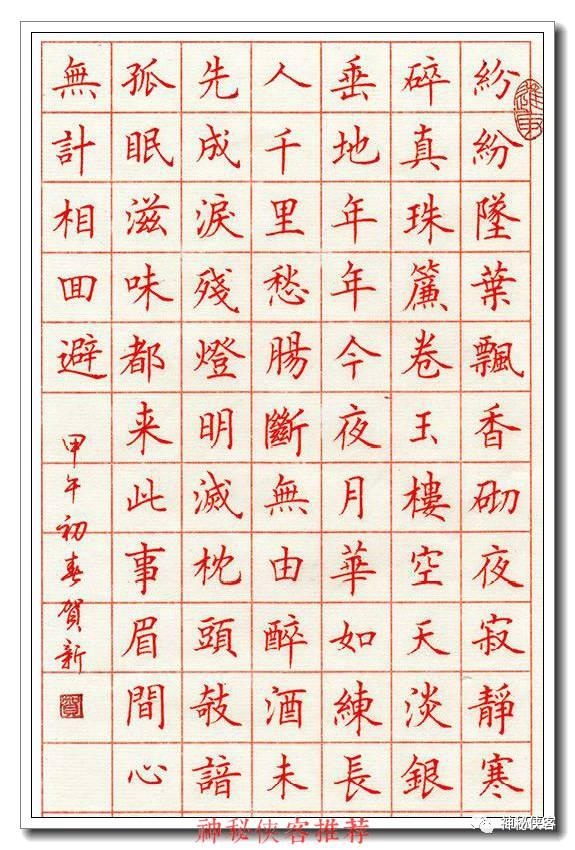 紛紛墜葉飄香砌夜寂靜寒
碎真珠簾卷玉樓空天淡銀
垂地年年今夜月華如練長
人千里愁腸斷無由醉酒未
先成淚殘燈明滅枕頭攲諳
孤眠滋味都来此事眉間心
無計相囬避
甲午初春賀新
神秘侠客推荐
神秘侠客